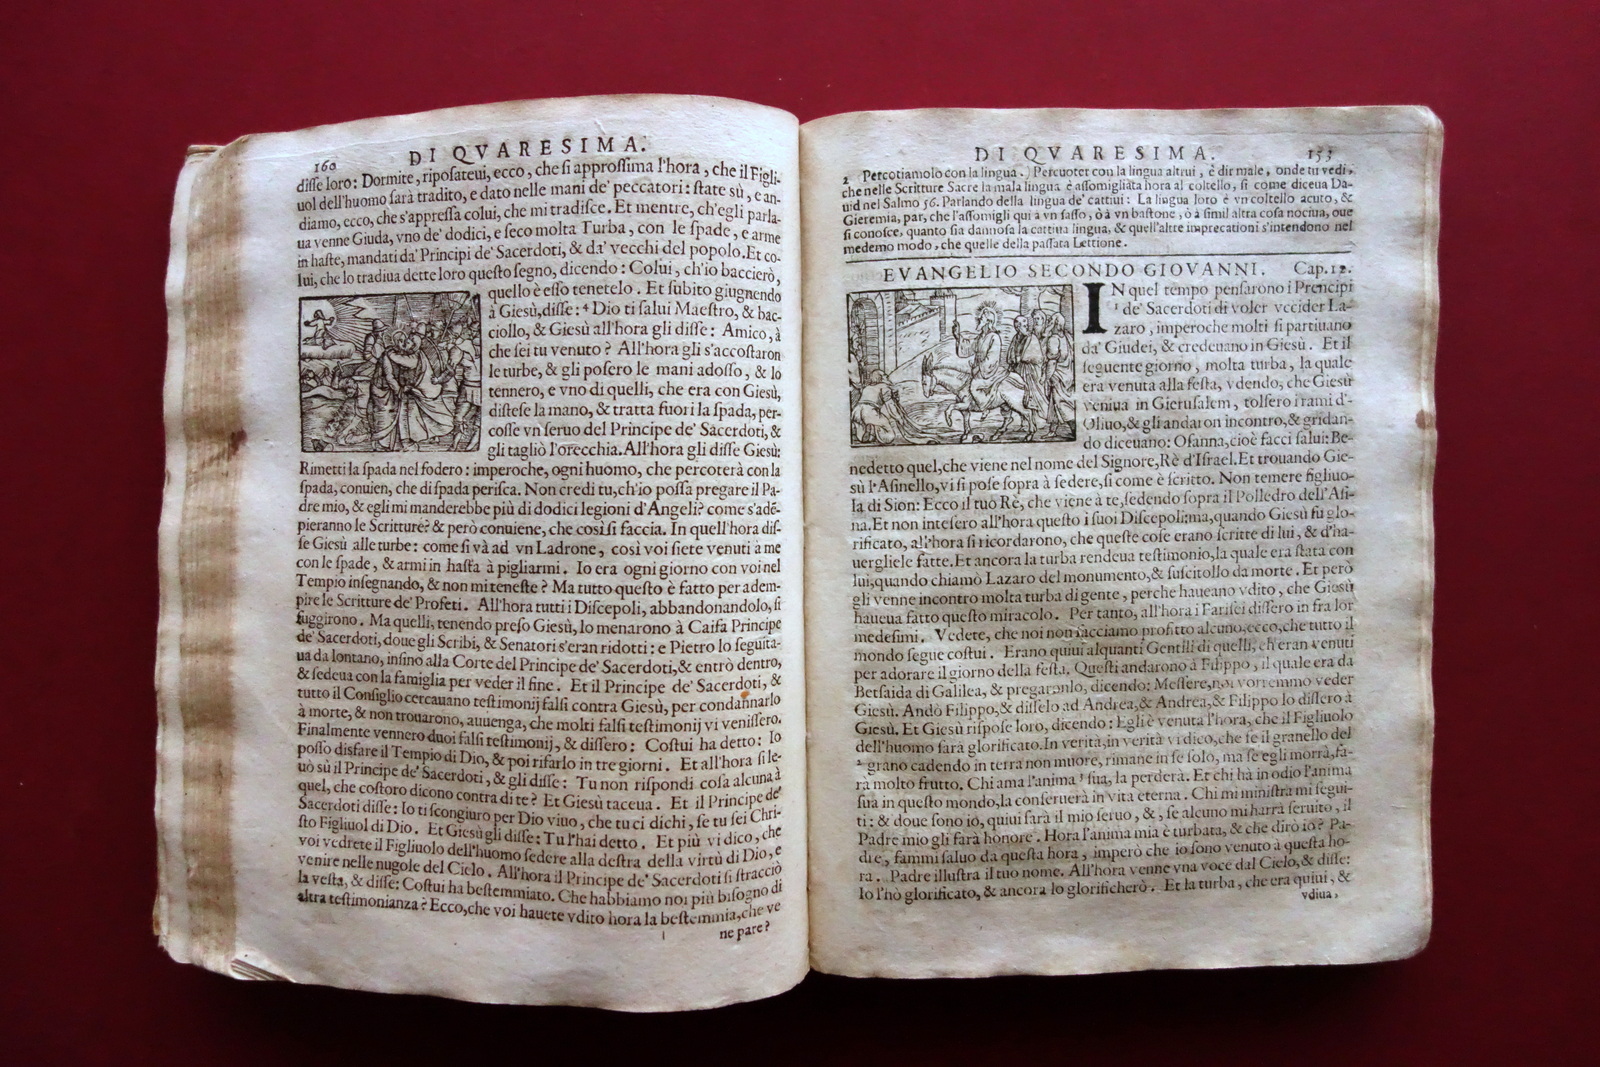 160
DI QVARESIMA.
diſſe loro: Dormite, ripoſateui, ecco, che ſi approſſima l'hora, che il Figli-
uol dell'huomo ſarà tradito, e dato nelle mani de' peccatori: ſtate sù, e an-
diamo, ecco, che s'appreſſa colui, che mi tradiſce. Et mentre, ch'egli parla-
ua venne Giuda, vno de' dodici, e ſeco molta Turba, con le ſpade, e arme
in haſte, mandati da' Principi de' Sacerdoti, & da' vecchi del popolo. Et co-
lui, che lo tradiua dette loro queſto ſegno, dicendo: Colui, ch'io baccierò,
quello è eſſo tenetelo. Et ſubito giugnendo
à Gieſù, diſſe: ⁴ Dio ti ſalui Maeſtro, & bac-
ciollo, & Gieſù all'hora gli diſſe: Amico, à
che ſei tu venuto? All'hora gli s'accoſtaron
le turbe, & gli poſero le mani adoſſo, & lo
tennero, e vno di quelli, che era con Gieſù,
diſteſe la mano, & tratta fuori la ſpada, per-
coſſe vn ſeruo del Principe de' Sacerdoti, &
gli tagliò l'orecchia. All'hora gli diſſe Gieſù:
Rimetti la ſpada nel fodero: imperoche, ogni huomo, che percoterà con la
ſpada, conuien, che di ſpada periſca. Non credi tu, ch'io poſſa pregare il Pa-
dre mio, & egli mi manderebbe più di dodici legioni d'Angeli? come s'adē-
pieranno le Scritture? & però conuiene, che così ſi faccia. In quell'hora diſ-
ſe Gieſù alle turbe: come ſi và ad vn Ladrone, così voi ſiete venuti à me
con le ſpade, & armi in haſta à pigliarmi. Io era ogni giorno con voi nel
Tempio inſegnando, & non mi teneſte? Ma tutto queſto è fatto per adem-
pire le Scritture de' Profeti. All'hora tutti i Diſcepoli, abbandonandolo, ſi
fuggirono. Ma quelli, tenendo preſo Gieſù, lo menarono à Caifa Principe
de' Sacerdoti, doue gli Scribi, & Senatori s'eran ridotti: e Pietro lo ſeguita-
ua da lontano, inſino alla Corte del Principe de' Sacerdoti, & entrò dentro,
& ſedeua con la famiglia per veder il fine. Et il Principe de' Sacerdoti, &
tutto il Conſiglio cercauano teſtimonij falſi contra Gieſù, per condannarlo
à morte, & non trouarono, auuenga, che molti falſi teſtimonij vi veniſſero.
Finalmente vennero duoi falſi teſtimonij, & diſſero: Coſtui ha detto: Io
poſſo disfare il Tempio di Dio, & poi rifarlo in tre giorni. Et all'hora ſi le-
uò sù il Principe de' Sacerdoti, & gli diſſe: Tu non riſpondi coſa alcuna à
quel, che coſtoro dicono contra di te? Et Gieſù taceua. Et il Principe de'
Sacerdoti diſſe: Io ti ſcongiuro per Dio viuo, che tu ci dichi, ſe tu ſei Chri-
ſto Figliuol di Dio. Et Gieſù gli diſſe: Tu l'hai detto. Et più vi dico, che
voi vedrete il Figliuolo dell'huomo ſedere alla deſtra della virtù di Dio, e
venire nelle nugole del Cielo. All'hora il Principe de' Sacerdoti ſi ſtracciò
la veſta, & diſſe: Coſtui ha beſtemmiato. Che habbiamo noi più biſogno di
altra teſtimonianza? Ecco, che voi hauete vdito hora la beſtemmia, che ve
ne pare?
DI QVARESIMA.
153
2 Percotiamolo con la lingua.) Percuoter con la lingua altrui, è dir male, onde tu vedi,
che nelle Scritture Sacre la mala lingua è aſſomigliata hora al coltello, ſi come diceua Da-
uid nel Salmo 56. Parlando della lingua de' cattiui: La lingua loro è vn coltello acuto, &
Gieremia, par, che l'aſſomigli qui à vn ſaſſo, ò à vn baſtone, ò à ſimil altra coſa nociua, oue
ſi conoſce, quanto ſia dannoſa la cattiua lingua, & quell'altre imprecationi s'intendono nel
medemo modo, che quelle della paſſata Lettione.
EVANGELIO SECONDO GIOVANNI. Cap. 12.
IN quel tempo penſarono i Prencipi
¹ de' Sacerdoti di voler vccider La-
zaro, imperoche molti ſi partiuano
da' Giudei, & credeuano in Gieſù. Et il
ſeguente giorno, molta turba, la quale
era venuta alla feſta, vdendo, che Gieſù
veniua in Gieruſalem, tolſero i rami d'-
Oliuo, & gli andaron incontro, & gridan-
do diceuano: Oſanna, cioè facci ſalui: Be-
nedetto quel, che viene nel nome del Signore, Rè d'Iſrael. Et trouando Gie-
sù l'Aſinello, vi ſi poſe ſopra à ſedere, ſi come è ſcritto. Non temere figliuo-
la di Sion: Ecco il tuo Rè, che viene à te, ſedendo ſopra il Polledro dell'Aſi-
na. Et non inteſero all'hora queſto i ſuoi Diſcepoli: ma, quando Gieſù fu glo-
rificato, all'hora ſi ricordarono, che queſte coſe erano ſcritte di lui, & d'ha-
uergliele fatte. Et ancora la turba rendeua teſtimonio, la quale era ſtata con
lui, quando chiamò Lazaro del monumento, & ſuſcitollo da morte. Et però
gli venne incontro molta turba di gente, perche haueano vdito, che Gieſù
haueua fatto queſto miracolo. Per tanto, all'hora i Fariſei diſſero in fra lor
medeſimi. Vedete, che noi non facciamo profitto alcuno, ecco, che tutto il
mondo ſegue coſtui. Erano quiui alquanti Gentili di quelli, ch'eran venuti
per adorare il giorno della feſta. Queſti andarono à Filippo, il quale era da
Betſaida di Galilea, & pregaronlo, dicendo: Meſſere, noi vorremmo veder
Gieſù. Andò Filippo, & diſſelo ad Andrea, & Andrea, & Filippo lo diſſero à
Gieſù. Et Gieſù riſpoſe loro, dicendo: Egli è venuta l'hora, che il Figliuolo
dell'huomo ſarà glorificato. In verità, in verità vi dico, che ſe il granello del
² grano cadendo in terra non muore, rimane in ſe ſolo, ma ſe egli morrà, fa-
rà molto frutto. Chi ama l'anima ³ ſua, la perderà. Et chi ha in odio l'anima
ſua in queſto mondo, la conſeruerà in vita eterna. Chi mi miniſtra mi ſegui-
ti: & doue ſono io, quiui ſarà il mio ſeruo, &, ſe alcuno mi harrà ſeruito, il
Padre mio gli farà honore. Hora l'anima mia è turbata, & che dirò io? Pa-
dre, fammi ſaluo da queſta hora, imperò che io ſono venuto à queſta ho-
ra. Padre illuſtra il tuo nome. All'hora venne vna voce dal Cielo, & diſſe:
Io l'hò glorificato, & ancora lo glorificherò. Et la turba, che era quiui, &
vdiua,